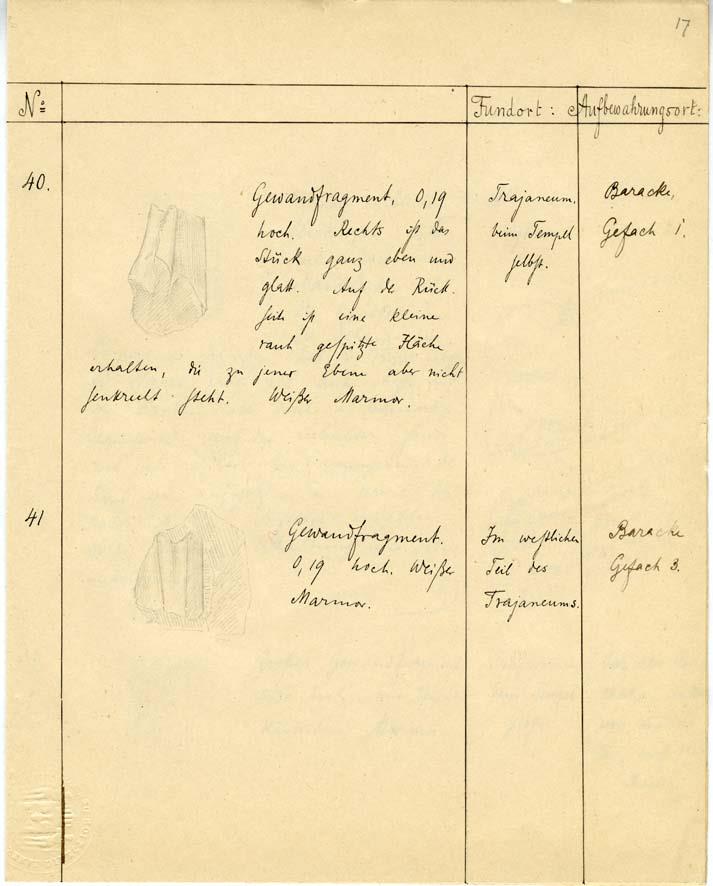 17
No Fundort: Aufbewahrungsort:
40.
Gewandfragment, 0,19
hoch. Rechts ist das
Stück ganz eben und
glatt. Auf der Rück-
seite ist eine kleine
rauh gespitzte Fläche
erhalten, die zu jener Ebene aber nicht
senkrecht steht. Weißer Marmor.
Trajaneum,
beim Tempel
selbst.
Baracke,
Gefach 1.
41
Gewandfragment.
0,19 hoch. Weißer
Marmor.
Im westlichen
Teil des
Trajaneums.
Baracke
Gefach 3.